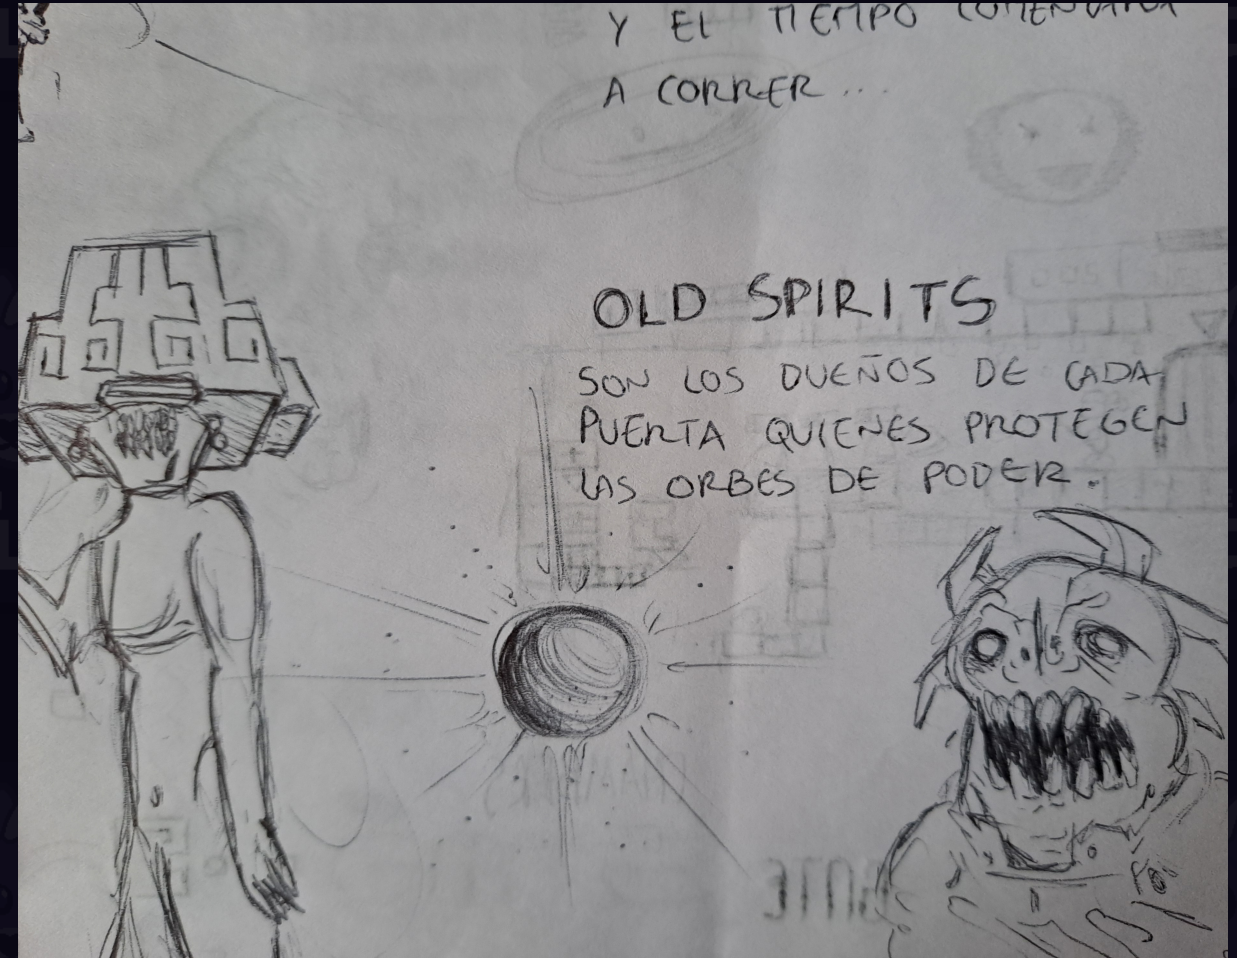 Y EL TIEMPO COMENZARA
A CORRER...
OLD SPIRITS
SON LOS DUEÑOS DE CADA
PUERTA QUIENES PROTEGEN
LAS ORBES DE PODER.